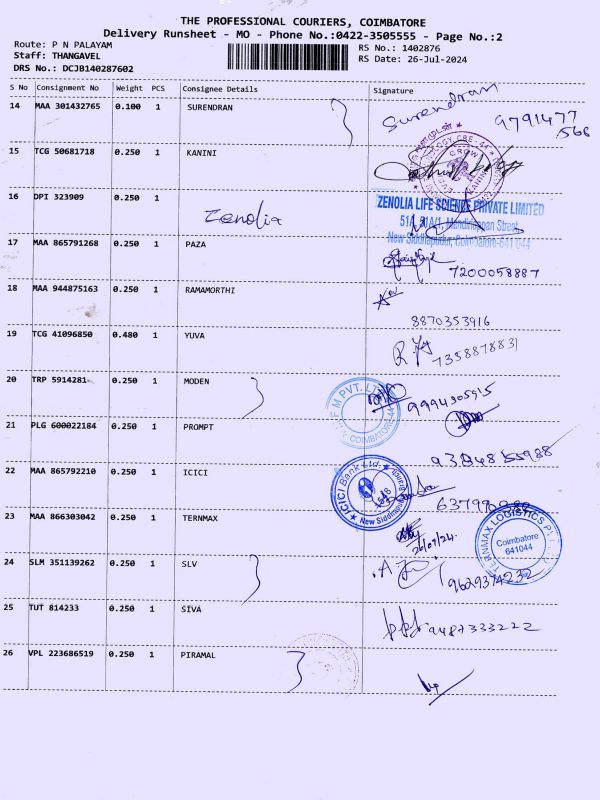 THE PROFESSIONAL COURIERS, COIMBATORE
Delivery Runsheet - MO - Phone No.:0422-3505555 - Page No.:2
Route: P N PALAYAM
Staff: THANGAVEL
DRS No.: DCJB140287602
RS No.: 1402876
RS Date: 26-Jul-2024
S No Consignment No Weight PCS Consignee Details Signature
14 MAA 301432765 0.100 1 SURENDRAN Surendran
9791477
568
15 TCG 50681718 0.250 1 KANINI
16 DPI 323909 0.250 1 Zenolia
ZENOLIA LIFE SCIENCE PRIVATE LIMITED
New Siddhapudur, Coimbatore-641 044
17 MAA 865791268 0.250 1 PAZA
7200058887
18 MAA 944875163 0.250 1 RAMAMORTHI
8870353916
19 TCG 41096850 0.480 1 YUVA
735887883
20 TRP 5914281 0.250 1 MODEN
F M PVT. LTD
COIMBATORE-44
9994305915
21 PLG 600022184 0.250 1 PROMPT
22 MAA 865792210 0.250 1 ICICI
ICICI Bank Ltd.
New Siddhapudur
23 MAA 866303042 0.250 1 TERNMAX
26/07/24
TERNMAX LOGISTICS
Coimbatore
641044
24 SLM 351139262 0.250 1 SLV
9629374232
25 TUT 814233 0.250 1 SIVA
9487333222
26 VPL 223686519 0.250 1 PIRAMAL